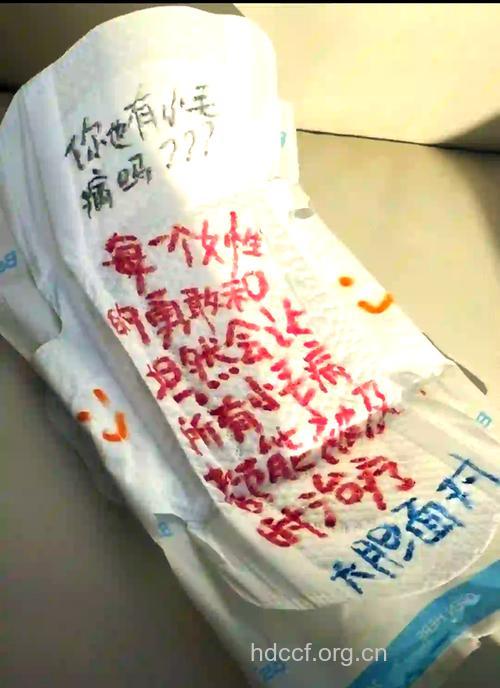 你也有小毛
病吗???
每一个女性
的勇敢和
坦然会让
所有小毛病
都能被及
时治疗
大胆面对
hdccf.org.cn